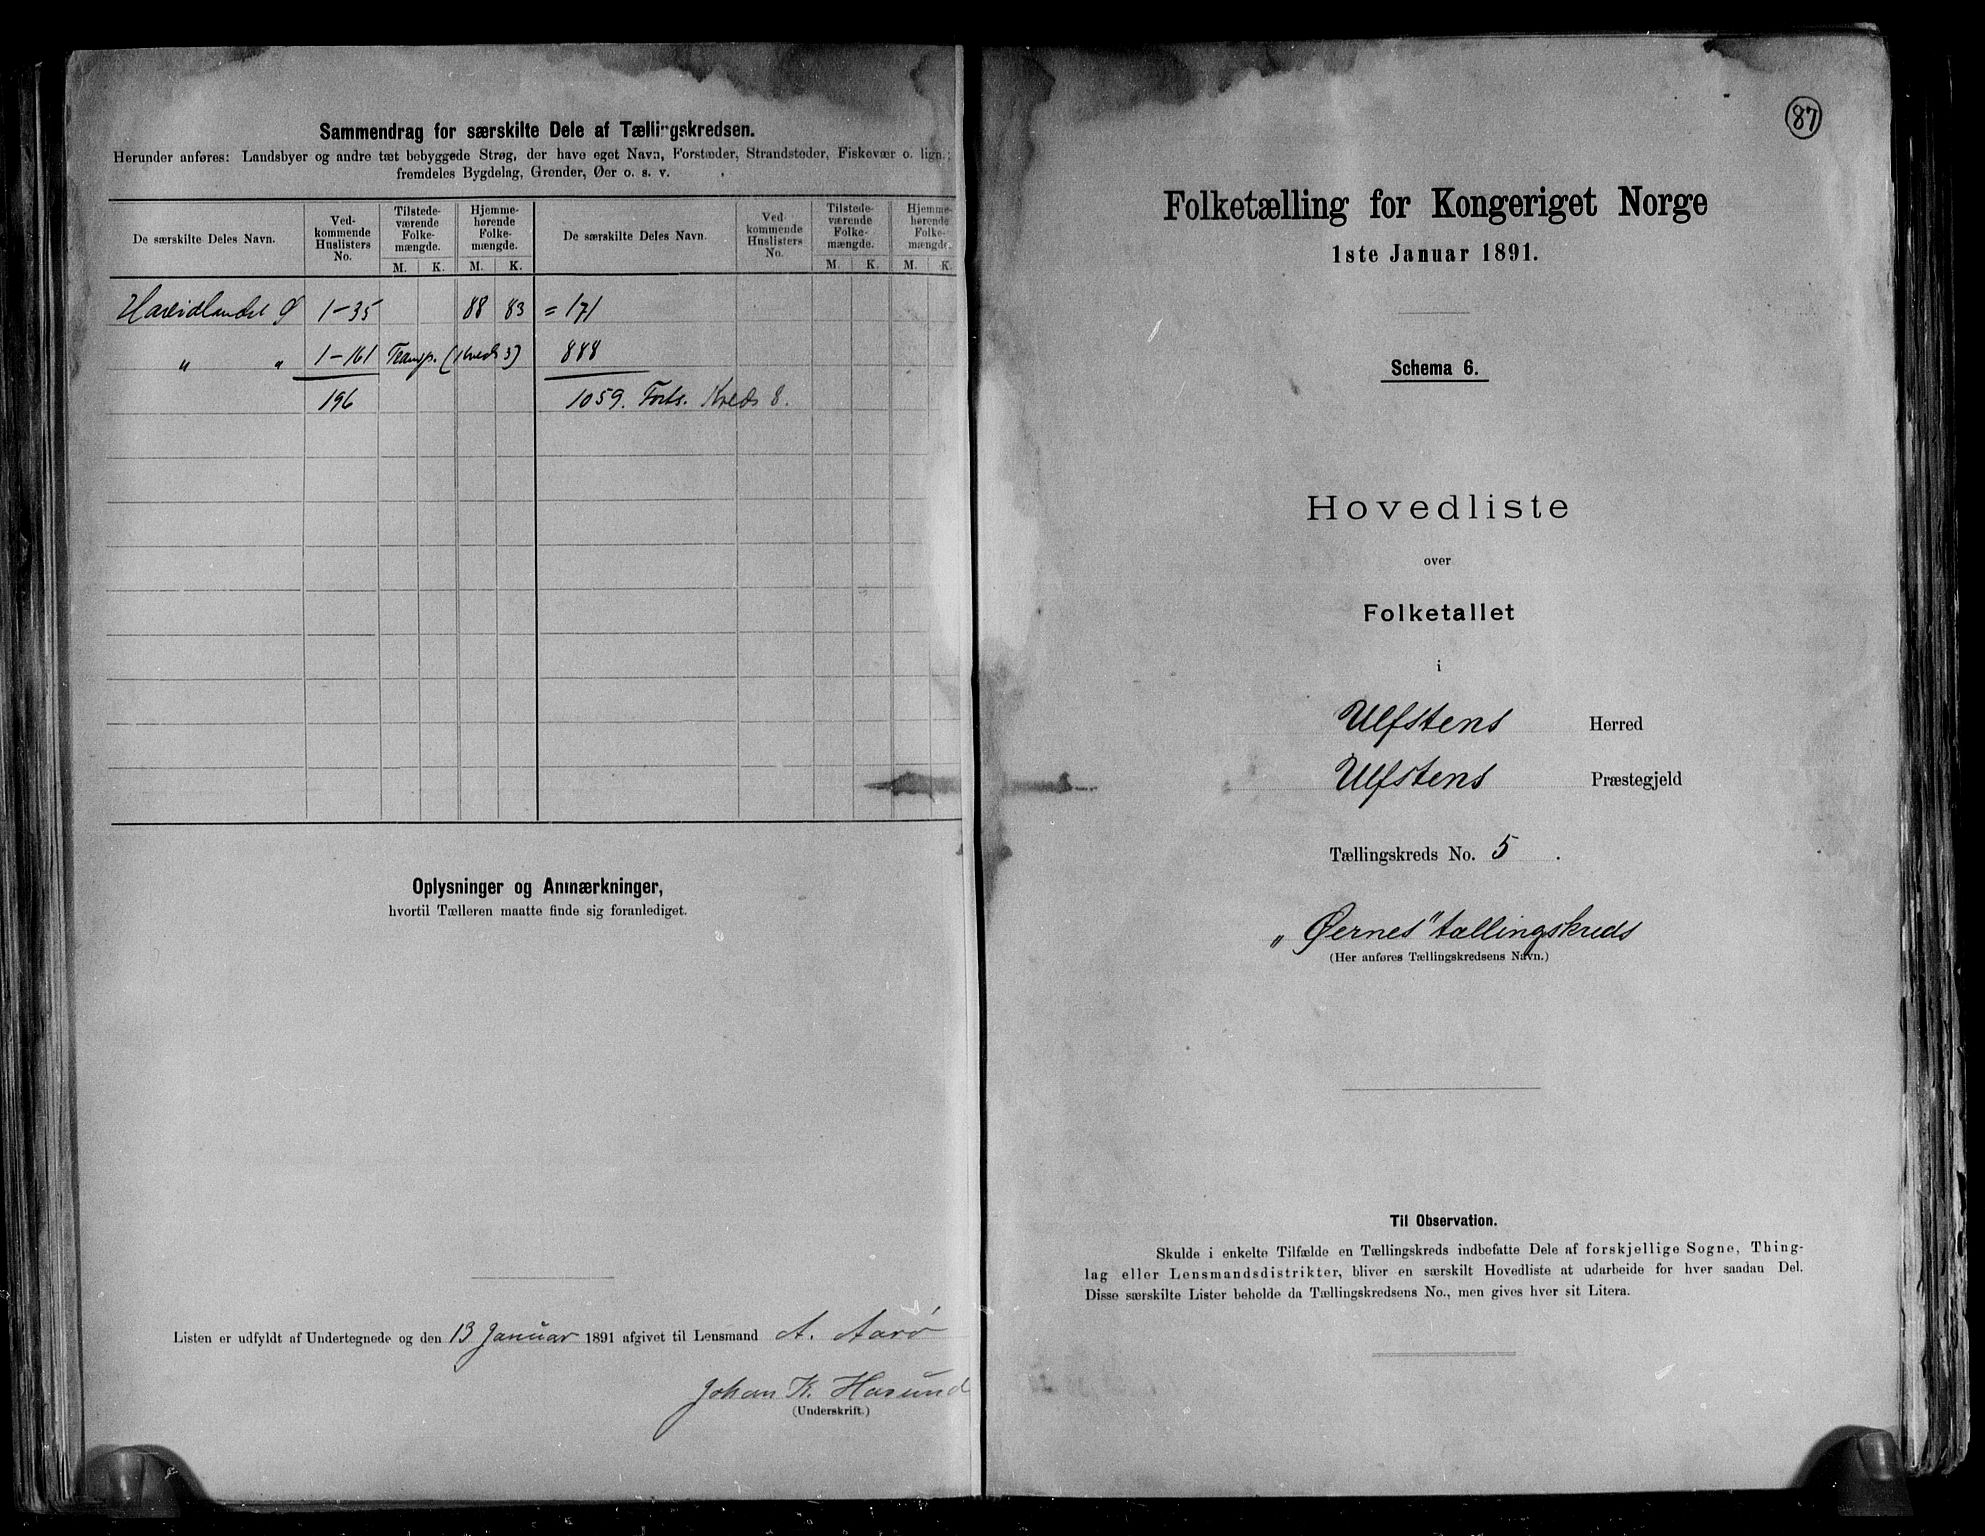 Sammendrag for særskilte Dele af Tællingskredsen.
Herunder anføres: Landsbyer og andre tæt bebyggede Strøg, der have eget Navn, Forstæder, Strandsteder, Fiskevær o. lign.;
fremdeles Bygdelag, Grender, Øer o. s. v.
De særskilte Deles Navn. Ved-kommende Huslisters No. Tilstede-værende Folke-mængde. Hjemme-hørende Folke-mængde. De særskilte Deles Navn. Ved kommende Huslisters No. Tilstede-værende Folke-mængde. Hjemme-hørende Folke-mængde.
M. K. M. K. M. K. M. K.
Hareidlandet Ø 1-35 88 83 = 171
" " 1-161 Transp. (Kreds 3) 888
196 1059. Forts. Kreds 8.
Oplysninger og Anmærkninger,
hvortil Tælleren maatte finde sig foranlediget.
Listen er udfyldt af Undertegnede og den 13 Januar 1891 afgivet til Lensmand A. Aarø
Johan K. Hasund
(Underskrift.)
87
Folketælling for Kongeriget Norge
1ste Januar 1891.
Schema 6.
Hovedliste
over
Folketallet
i
Ulfstens Herred
Ulfstens Præstegjeld
Tællingskreds No. 5.
„Øernes" tællingskreds
(Her anføres Tællingskredsens Navn.)
Til Observation.
Skulde i enkelte Tilfælde en Tællingskreds indbefatte Dele af forskjellige Sogne, Thing-
lag eller Lensmandsdistrikter, bliver en særskilt Hovedliste at udarbeide for hver saadan Del.
Disse særskilte Lister beholde da Tællingskredsens No., men gives hver sit Litera.